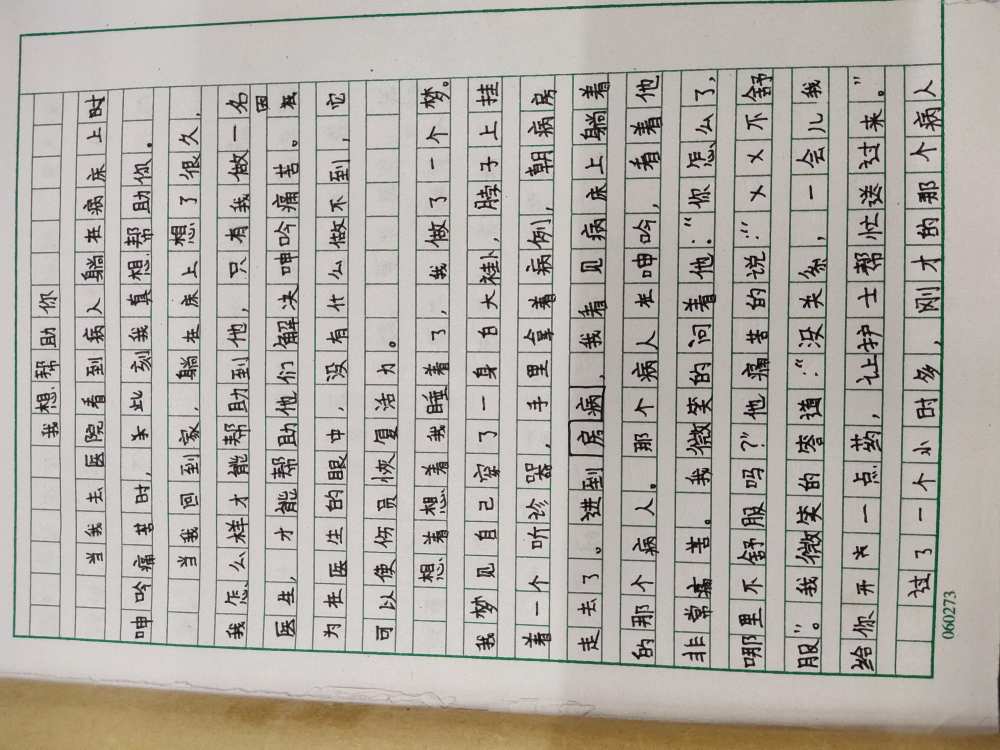 我想帮助你
当我去医院看到病人躺在病床上时
呻吟痛苦时，于此刻我真想帮助你。
当我回到家，躺在床上想了很久，
我怎么样才能帮助到他，只有我做一名
医生，才能帮助他们解决呻吟痛苦。因我
为在医生的眼中，没有什么做不到，它
可以使伤员恢复活力。
想着想着我睡着了，我做了一个梦。
我梦见自己穿了一身白大褂，脖子上挂
着一个听诊器，手里拿着病例，朝病房
走去了。进到房病，我看见病床上躺着
的那个病人。那个病人在呻吟，看着他
非常痛苦。我微笑的问着他：“你怎么了，
哪里不舒服吗？”他痛苦的说：“××不舒
服”。我微笑的答道：“没关系，一会儿我
给你开一点药，让护士帮忙送过来。”
过了一个小时多，刚才的那个病人
060273